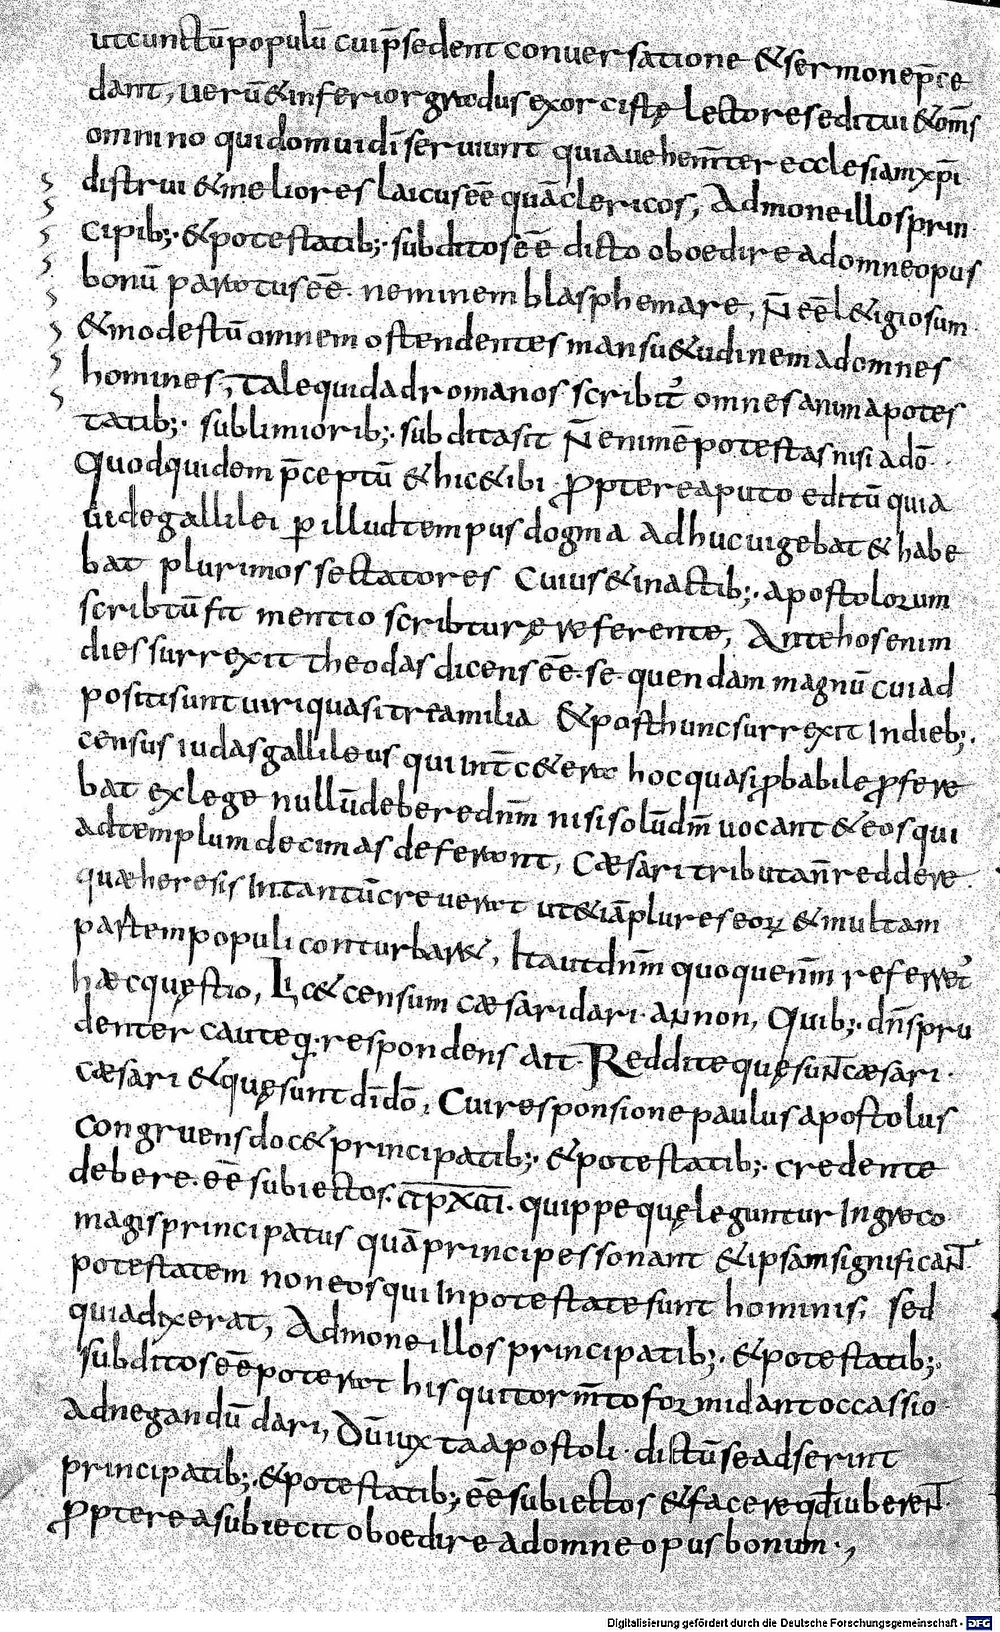 ut cunctū populū cui p̄sedent conuersatione & sermone p̄ce
dant, uerū & inferior gradus exorcistę lectores editui & om̄s
omnino qui domui dī seruiunt quia uehem̄ter ecclesiam xp̄i
distrui & meliores laicus eē quā clericos, Admone illos prin
cipib; & potestatib; subditos eē dicto oboedire ad omne opus
bonū paratus eē. neminem blasphemare, n̄ eē l&igiosum
& modestū omnem ostendentes mansu&udinem ad omnes
homines, Tale quid ad romanos scribit᷒ omnes anima potes
tatib; sublimiorib; subdita sit N̄ enim ē potestas nisi a dō.
Quod quidem p̄ceptū & hic & ibi propterea puto editū quia
iude gallilei per illud tempus dogma adhuc uigebat & habe
bat plurimos sectatores Cuius & in actib; apostolorum
scribtū fit mentio scribturę referente, Ante hos enim
dies surrexit theodas dicens eē se quendam magnū cui ad
positi sunt uiri quasi treamilia & post hunc surrexit In dieb;
census iudas gallileus qui int̄ c&era hoc quasi probabile profere
bat ex lege nullū debere dnm̄ nisi solū dm̄ uocant & eos qui
ad templum decimas deferunt, Cæsari tributa n̄ reddere.
quæ heresis In tantū creuerat ut & iā plures eoꝝ & multam
partem populi conturbar&, Ita ut dnm̄ quoque nm̄ referret᷒
hæc quęstio, Lic& censum cæsari dari an non, Quib; dn̄s pru
denter cauteq; respondens ait Reddite quę sunt cæsari
cæsari & quę sunt dī dō, Cui responsione paulus apostolus
congruens doc& principatib; & potestatib; credente
debere eē subiectos. quippe quę leguntur In greco
magis principatus quā principes sonant & ipsam significant
potestatem non eos qui In potestate sunt hominis, sed
quia dixerat, Admone illos principatib; & potestatib;
subditos eē poterat his qui torm̄to formidant occassio
Ad negandū dari, Dū iuxta apostoli dictū se adserint
principatib; & potestatib; eē subiectos & facere qd̄ iuberent
propterea subiecit oboedire ad omne opus bonum.,
Digitalisierung gefördert durch die Deutsche Forschungsgemeinschaft - DFG